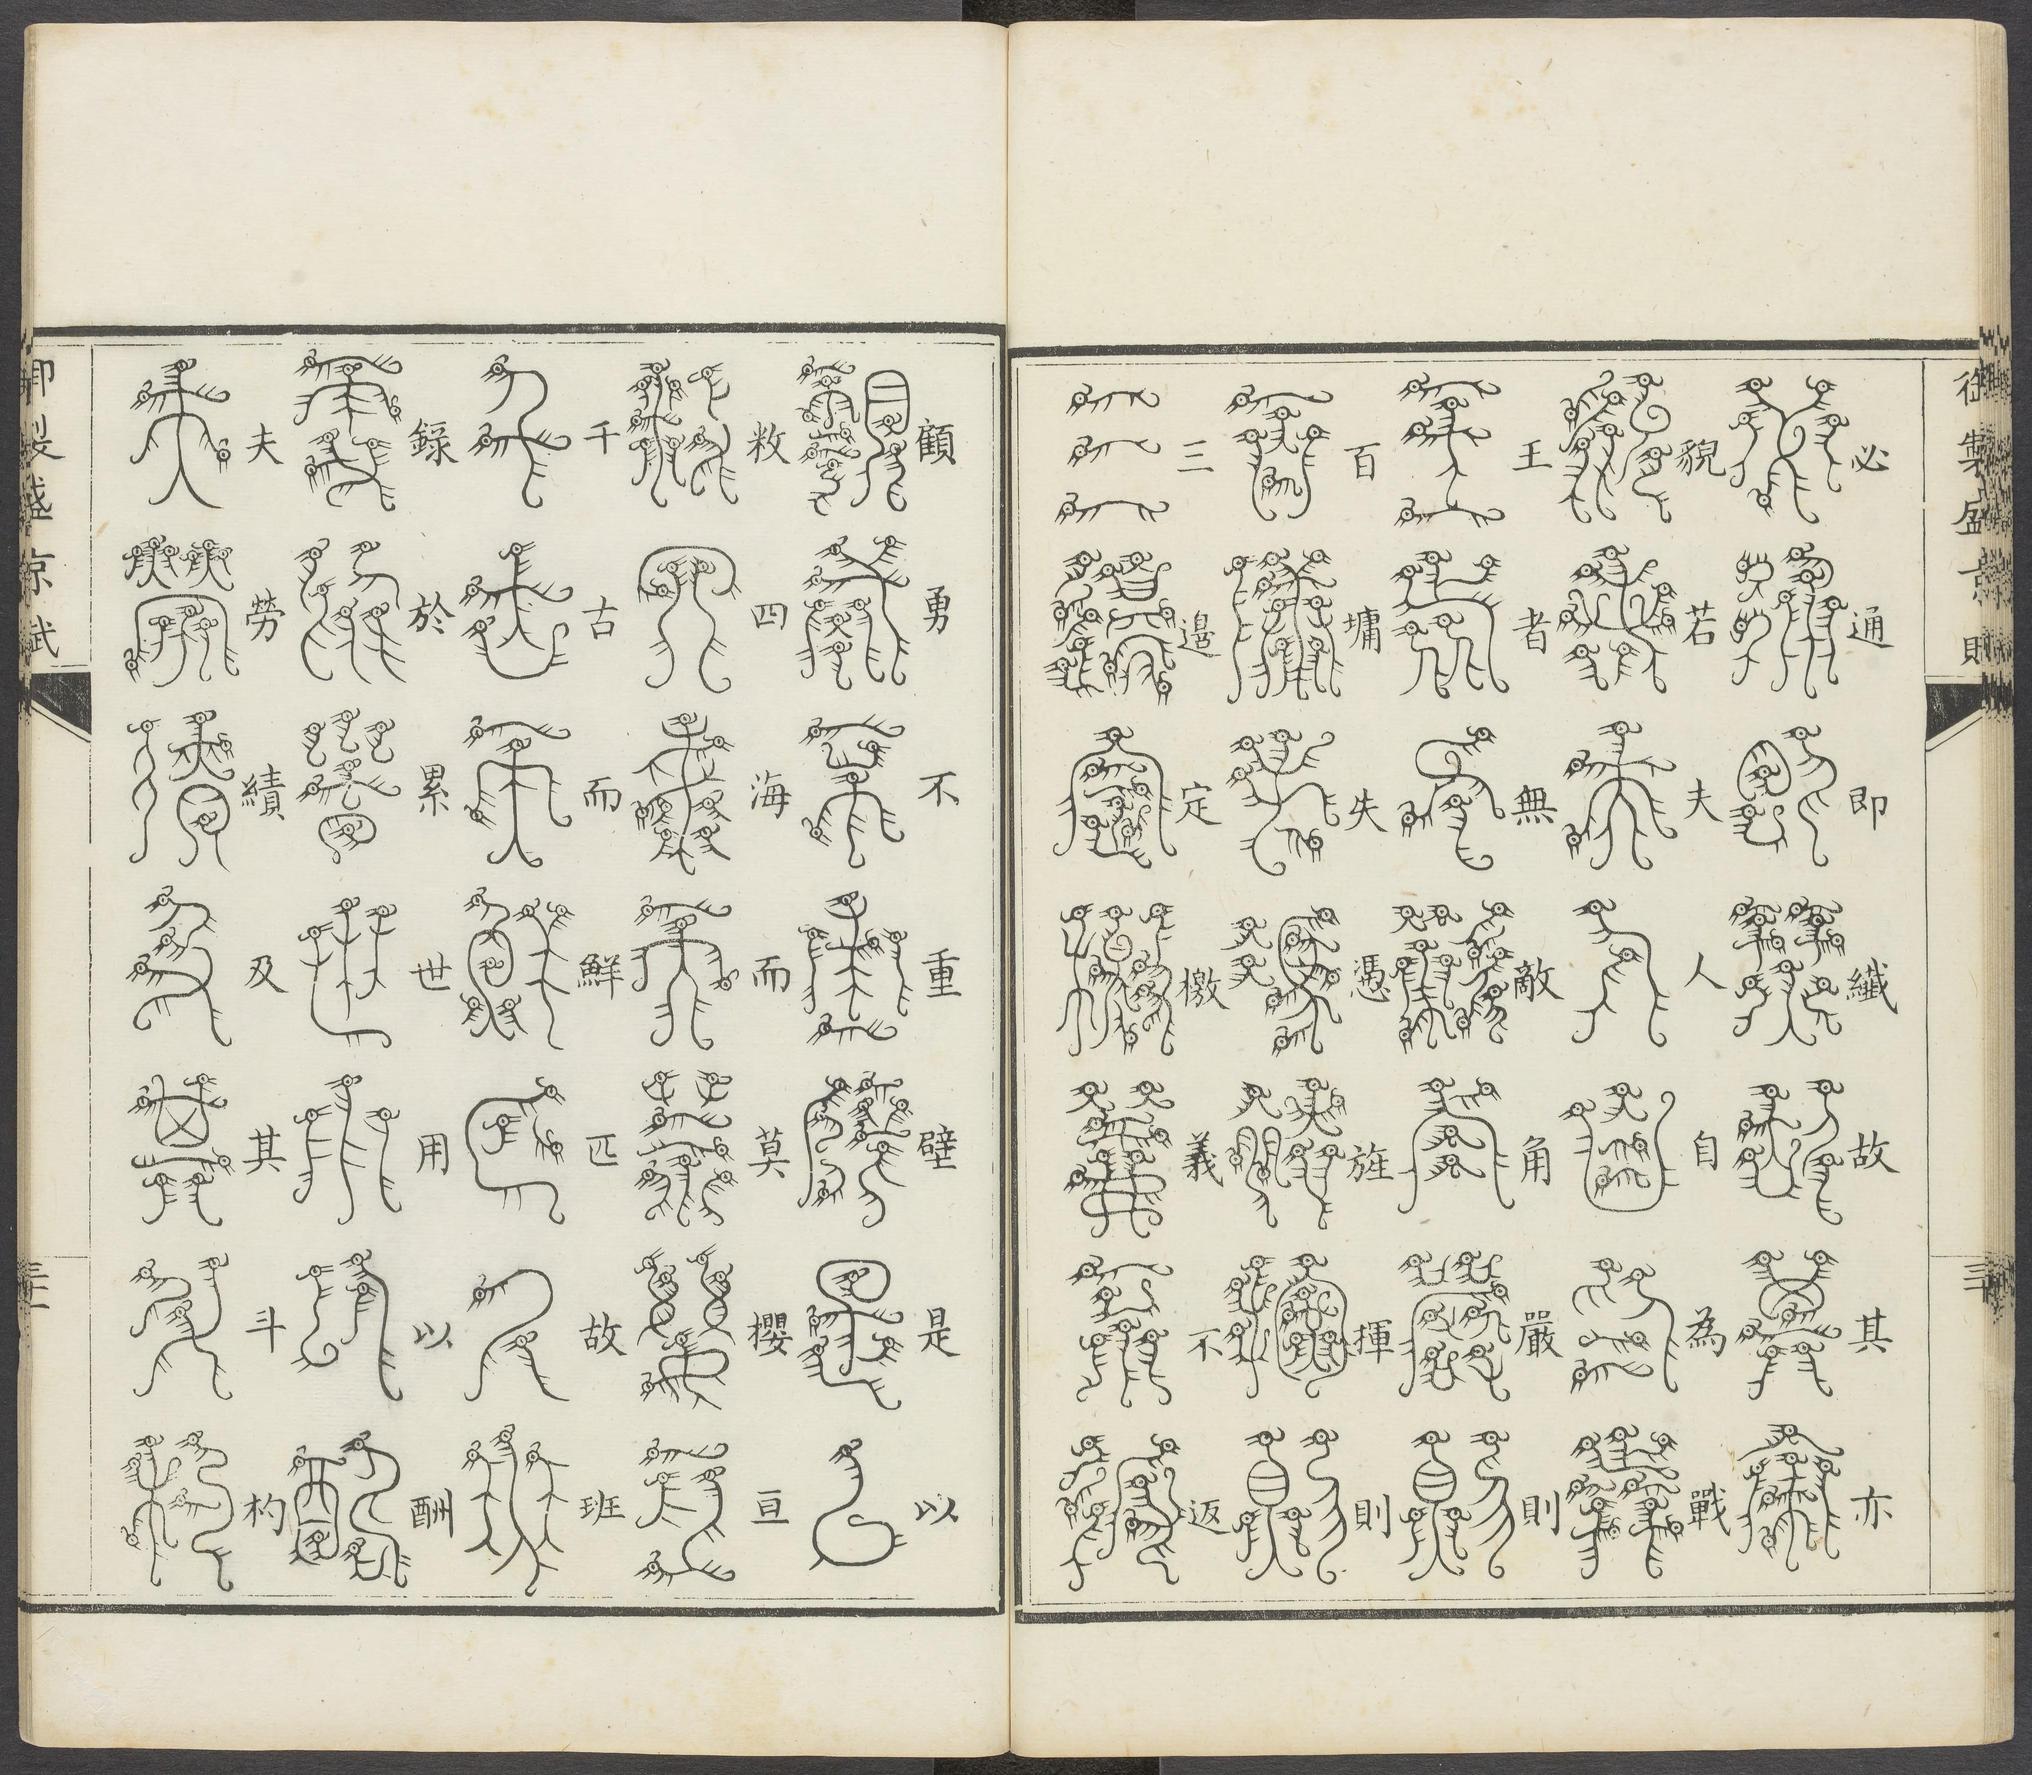 御製盛京賦
必通即纖故其亦
貌若夫人自為戰
王者無敵角嚴則
百墉失憑旌揮則
三邊定檄義不返
顧勇不重壁是以
敉四海而莫攖亘
千古而鮮匹故班
錄於累世用以酬
夫勞績及其斗杓
御製盛京賦